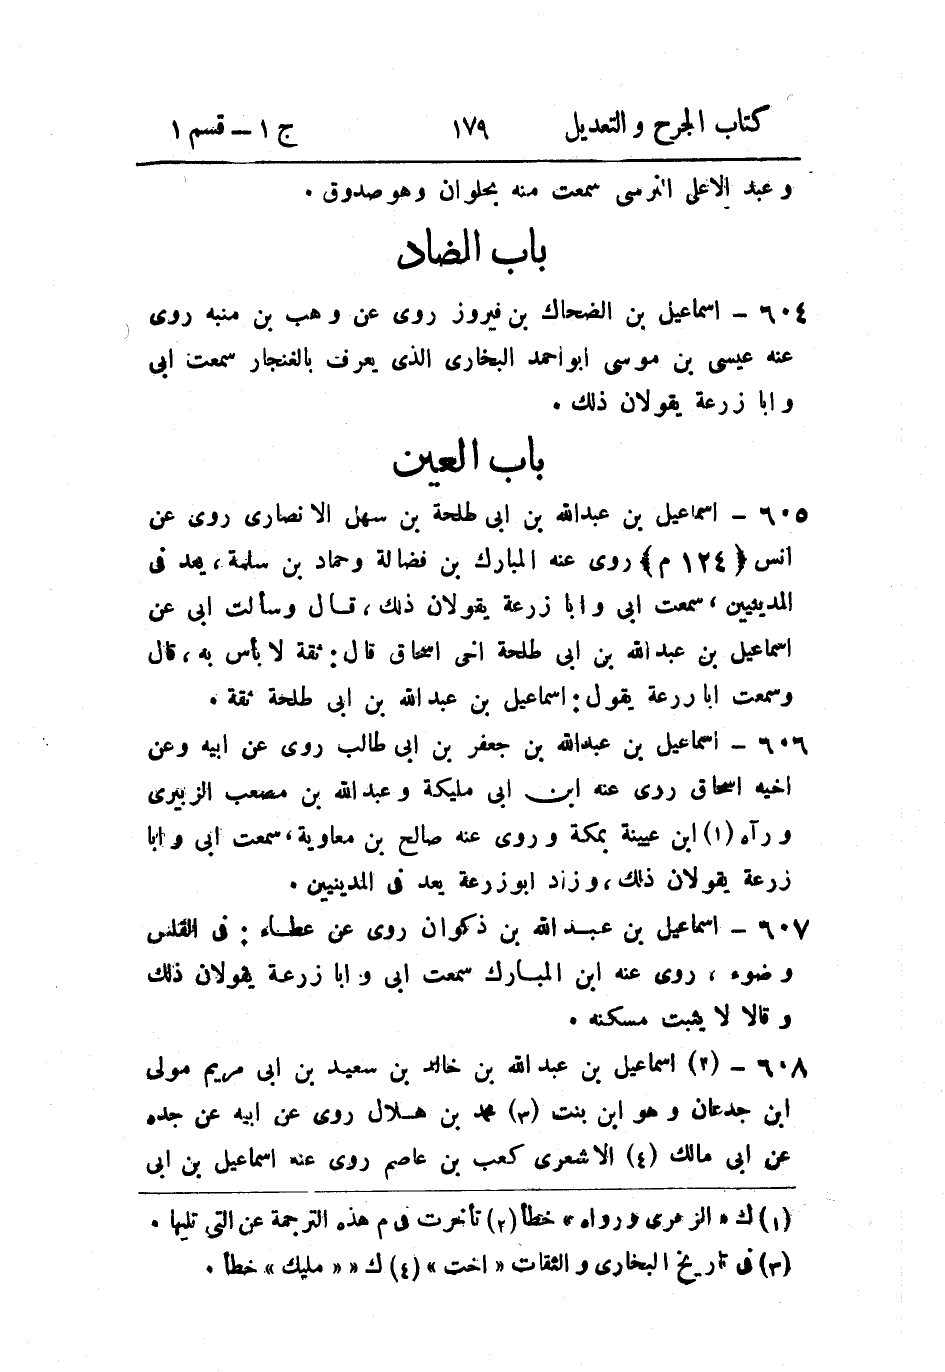 كتاب الجرح و التعديل ١٧٩ ج ١ – قسم ١
و عبد الاعلى النرسى سمعت منه بحلوان وهو صدوق .
باب الضاد
٦٠٤ – اسماعيل بن الضحاك بن فيروز روى عن وهب بن منبه روى
عنه عيسى بن موسى ابو احمد البخارى الذى يعرف بالغنجار سمعت ابى
و ابا زرعة يقولان ذلك .
باب العين
٦٠٥ – اسماعيل بن عبدالله بن ابى طلحة بن سهل الانصارى روى عن
انس ﴿١٢٤ م﴾ روى عنه المبارك بن فضالة وحماد بن سلمة ، يعد فى
المدينيين ، سمعت ابى و ابا زرعة يقولان ذلك ، قال وسألت ابى عن
اسماعيل بن عبد الله بن ابى طلحة اخى اسحاق قال : ثقة لا بأس به ، قال
وسمعت ابا ررعة يقول : اسماعيل بن عبد الله بن ابى طلحة ثقة .
٦٠٦ – اسماعيل بن عبدالله بن جعفر بن ابى طالب روى عن ابيه وعن
اخيه اسحاق روى عنه ابن ابى مليكة و عبدالله بن مصعب الزبيرى
و رآه (١) ابن عيينة بمكة و روى عنه صالح بن معاوية ، سمعت ابى و ابا
زرعة يقولان ذلك ، و زاد ابو زرعة يعد فى المدينيين .
٦٠٧ – اسماعيل بن عبد الله بن ذكوان روى عن عطاء : فى القلس
وضوء ، روى عنه ابن المبارك سمعت ابى و ابا زرعة يقولان ذلك
و قالا لا يثبت مسكنه .
٦٠٨ – (٢) اسماعيل بن عبد الله بن خالد بن سعيد بن ابى مريم مولى
ابن جدعان و هو ابن بنت (٣) محمد بن هلال روى عن ابيه عن جده
عن ابى مالك (٤) الاشعرى كعب بن عاصم روى عنه اسماعيل بن ابى
(١) ك « الزهرى ورواه » خطأ (٢) تأخرت فى م هذه الترجمة عن التى تليها .
(٣) فى تاريخ البخارى و الثقات « اخت » (٤) ك « مليك » خطأ .